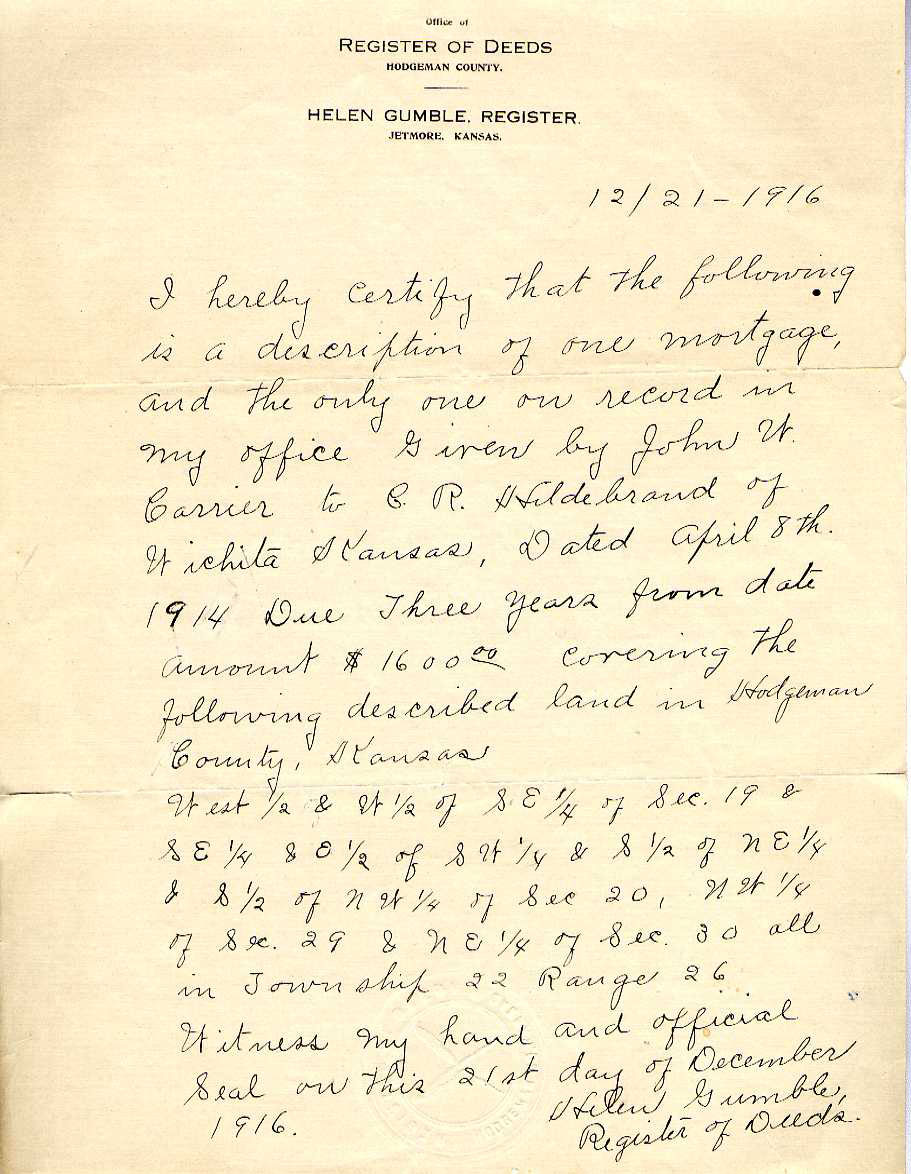 Office of
REGISTER OF DEEDS
HODGEMAN COUNTY.
HELEN GUMBLE, REGISTER.
JETMORE, KANSAS.
12/21-1916
I hereby certify that the following
is a description of one mortgage,
and the only one on record in
my office Given by John W.
Carrier to C. R. Hildebrand of
Wichita Kansas, Dated April 8th.
1914 Due Three Years from date
amount $1600 00 covering the
following described land in Hodgeman
County, Kansas
West 1/2 & W 1/2 of S E 1/4 of Sec. 19 &
S E 1/4 & E 1/2 of S W 1/4 & S 1/2 of N E 1/4
& S 1/2 of N W 1/4 of Sec 20, N W 1/4
of Sec. 29 & N E 1/4 of Sec. 30 all
in Township 22 Range 26
Witness my hand and official
Seal on this 21st day of December
1916.
Helen Gumble,
Register of Deeds.